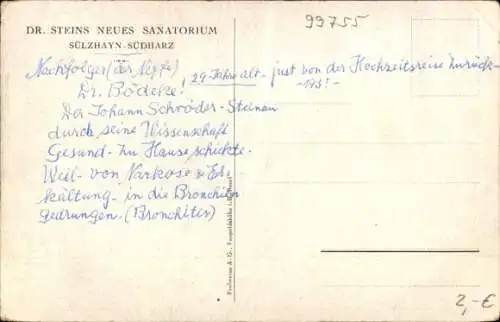 99755
DR. STEINS NEUES SANATORIUM
SÜLZHAYN-SÜDHARZ
Nachfolger (der Neffe) 29 Jahre alt - just von der Hochzeitsreise zurück -
Dr. Bödeke!
Der Johann Schröder-Steinau
durch seine Wissenschaft
Gesund - zu Hause schickte.
Weil - von Narkose & Er-
kältung - in die Bronchien
gedrungen. (Bronchites)
2,-€